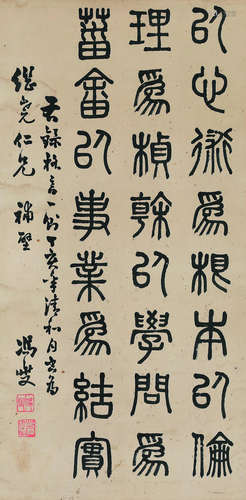 以心術爲根本以倫
理爲楨榦以學問爲
菑畬以事業爲結實
錄 言一則丁亥年清和月書爲
仁兄 補壁
馮燮